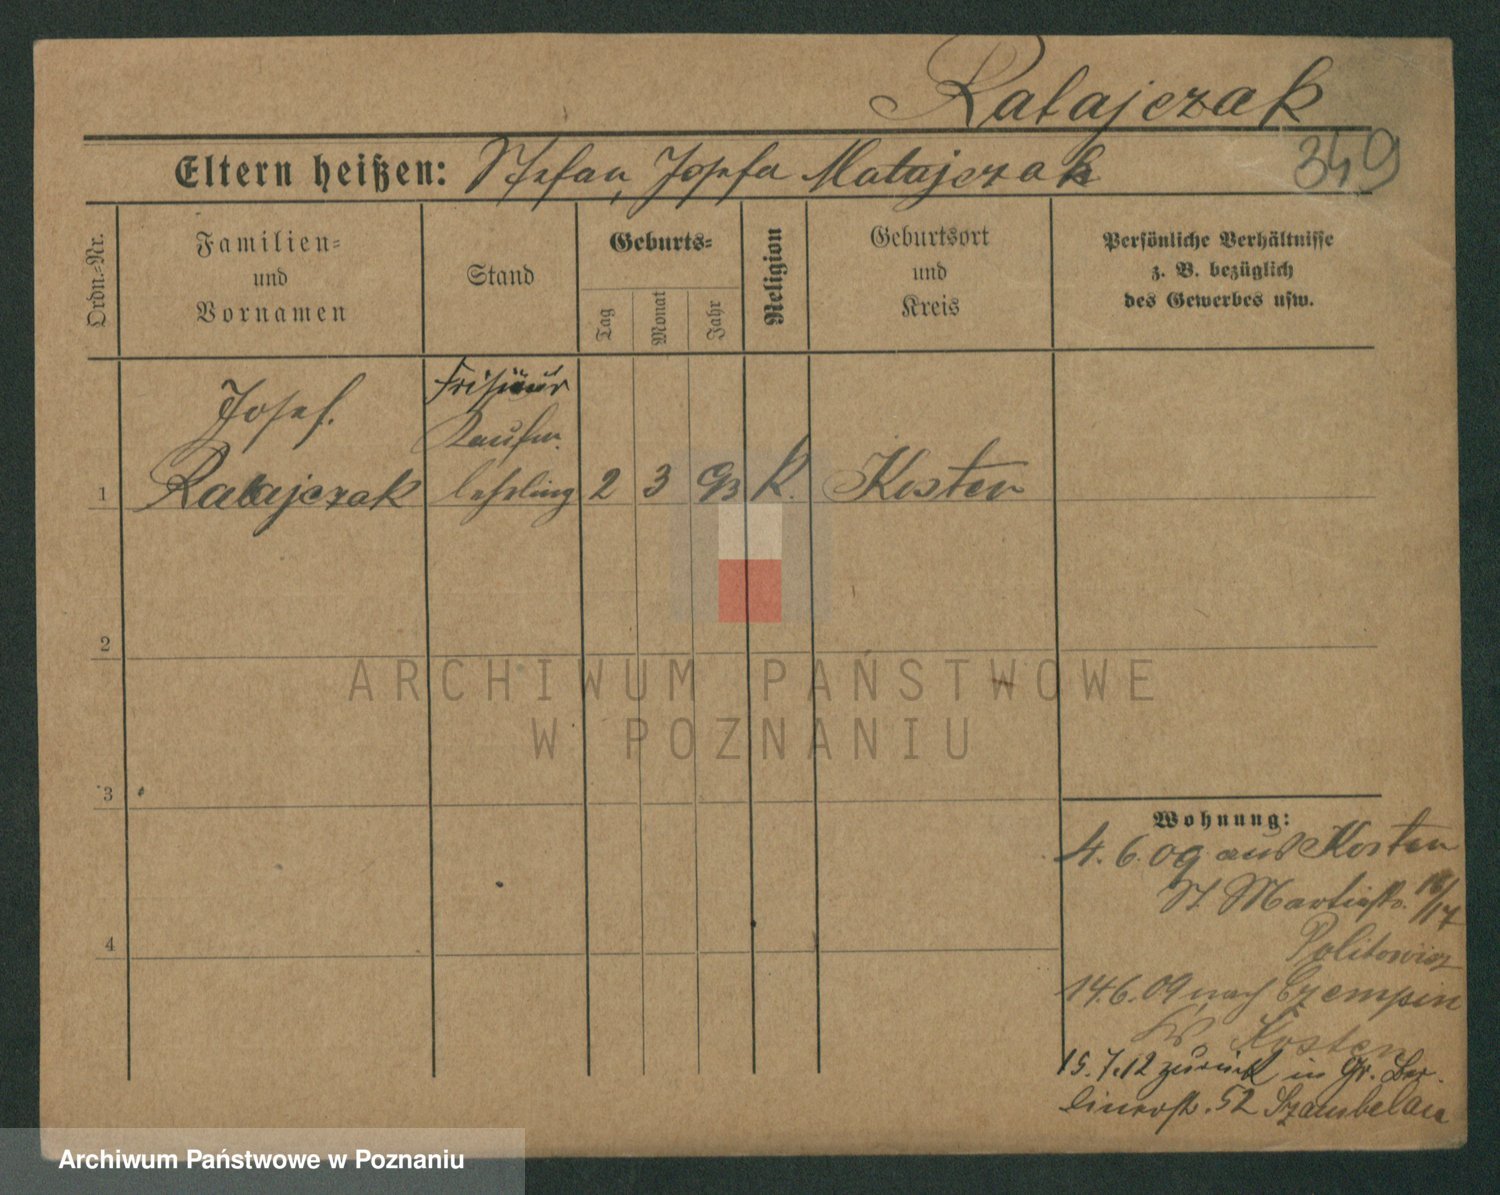 Ratajczak
349
Eltern heißen: Stefan, Josefa Matajczak
Ordn.-Nr.
Familien-
und
Vornamen
Stand
Geburts-
Tag
Monat
Jahr
Religion
Geburtsort
und
Kreis
Persönliche Verhältnisse
z. B. bezüglich
des Gewerbes usw.
Josef.
Ratajczak
Friseur
Kaufm.
lehrling
1
2 3 93 K. Kosten
2
3
4
ARCHIWUM PAŃSTWOWE
W POZNANIU
Wohnung:
4. 6. 09 aus Kosten
St Martinstr. 16/17
Politowicz
14.6.09 nach Czempin
Kr. Kosten
15.7.12 zurück in Gr. Ber-
linerstr. 52 Szambelan
Archiwum Państwowe w Poznaniu